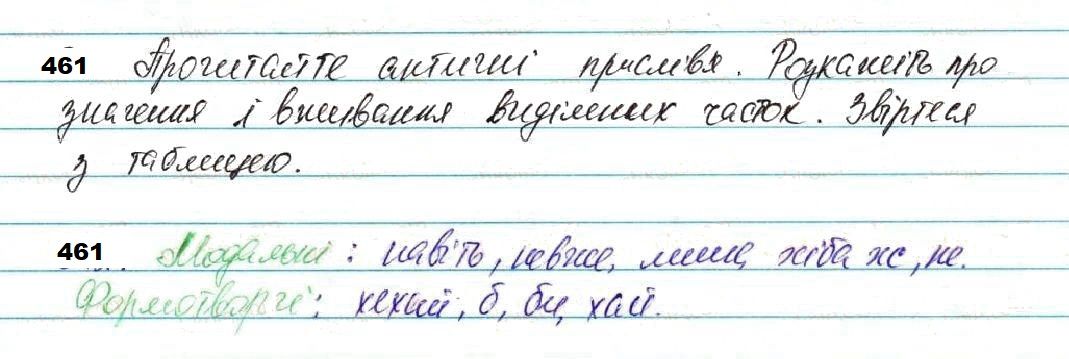 461 Прочитайте античні прислів'я. Розкажіть про
значення і вживання виділених часток. Звіртеся
з таблицею.
461 Модальні : навіть, невже, лише, хіба ж, не.
Формотворчі : нехай, б, би, хай.